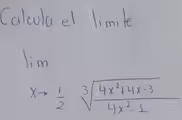 Calcula el limite
lim
x→ 1/2 ∛((4x²+4x-3)/(4x²-1))